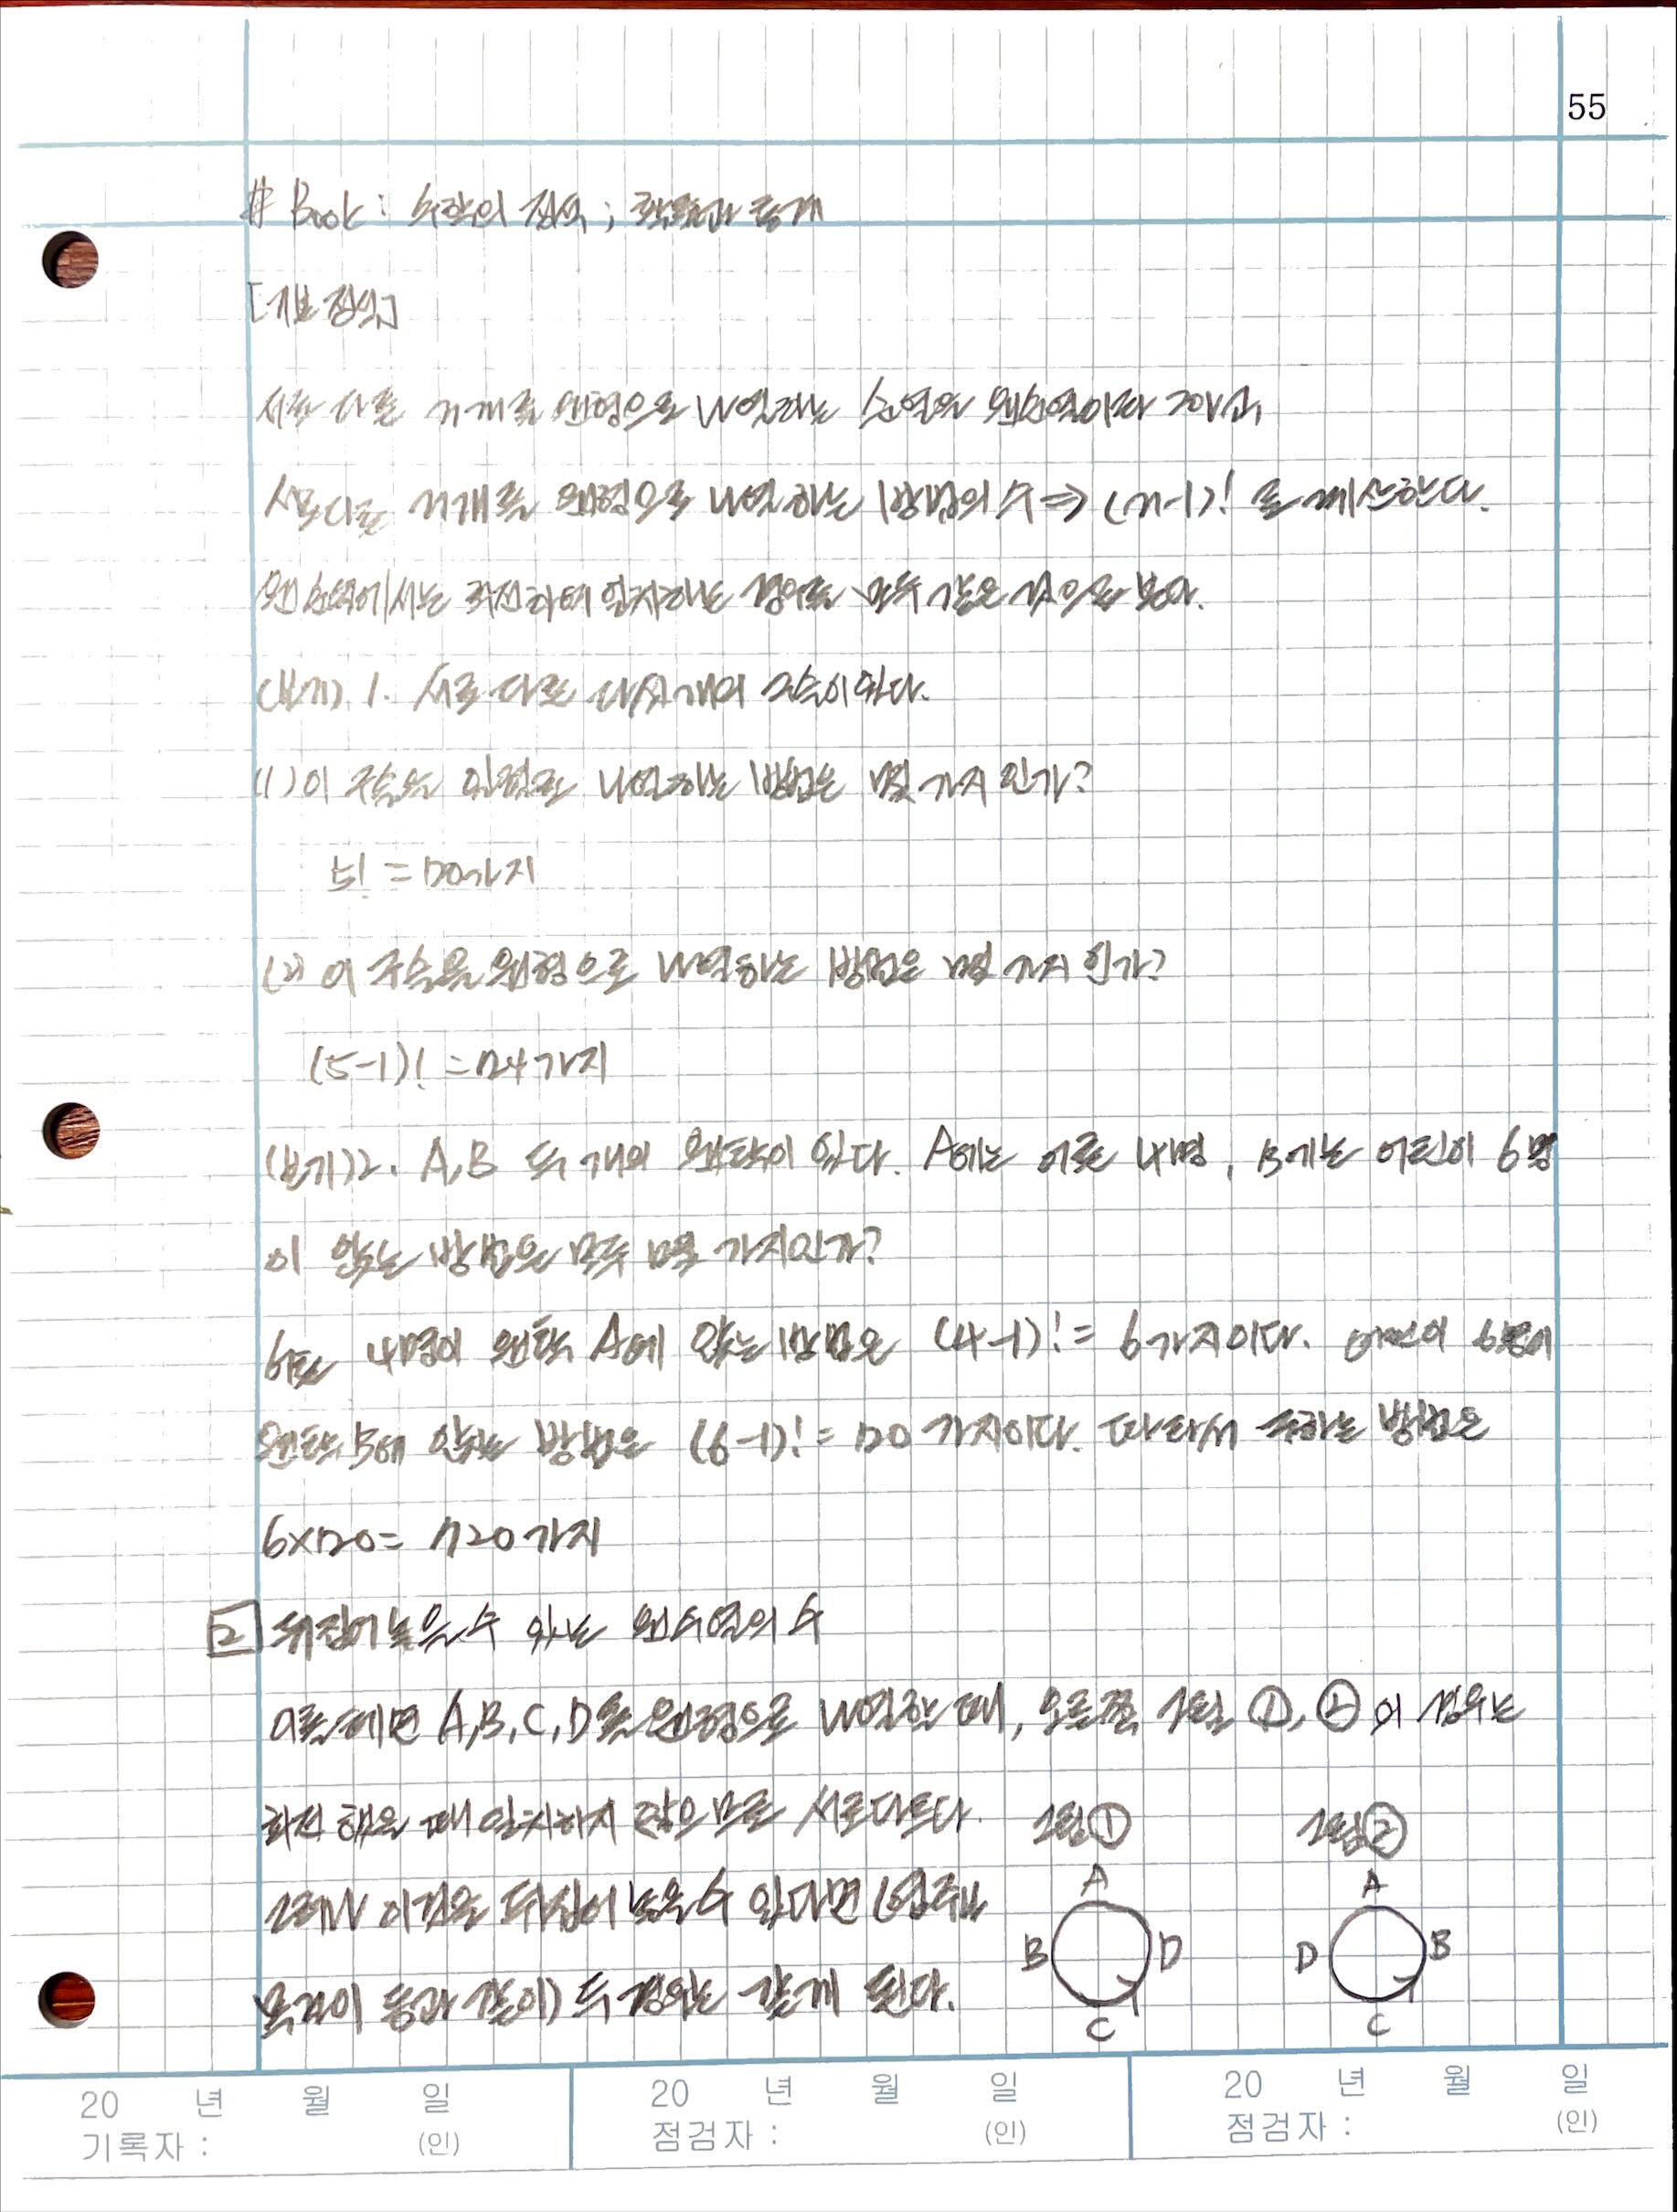 55
# Book : 수학의 정석 ; 확률과 통계
[기본정석]
서로 다른 n개를 원형으로 나열하는 순열을 원순열이라 하고,
서로 다른 n개를 원형으로 나열하는 방법의 수 ⇒ (n-1)! 로 계산한다.
원순열에서는 회전하여 일치하는 경우를 모두 같은 것으로 본다.
(보기) 1. 서로 다른 다섯 개의 구슬이 있다.
(1) 이 구슬을 일렬로 나열하는 방법은 몇 가지 인가?
5! = 120가지
(2) 이 구슬을 원형으로 나열하는 방법은 몇 가지 인가?
(5-1)! = 24가지
(보기) 2. A, B 두 개의 원탁이 있다. A에는 어른 4명, B에는 어린이 6명
이 앉는 방법은 모두 몇 가지인가?
어른 4명이 원탁 A에 앉는 방법은 (4-1)! = 6가지이다. 어린이 6명이
원탁 B에 앉는 방법은 (6-1)! = 120 가지이다. 따라서 구하는 방법은
6×120 = 720가지
2 뒤집어 놓을 수 있는 원순열의 수
이를테면 A, B, C, D를 원형으로 나열할 때, 오른쪽 그림 ①, ②의 경우는
회전 했을 때 일치하지 않으므로 서로 다르다. 그림① 그림②
그러나 이것을 뒤집어 놓을 수 있다면
목걸이 등과 같이) 두 경우는 같게 된다.
A A
B D D B
C C
20 년 월 일 20 년 월 일 20 년 월 일
기록자 : (인) 점검자 : (인) 점검자 : (인)